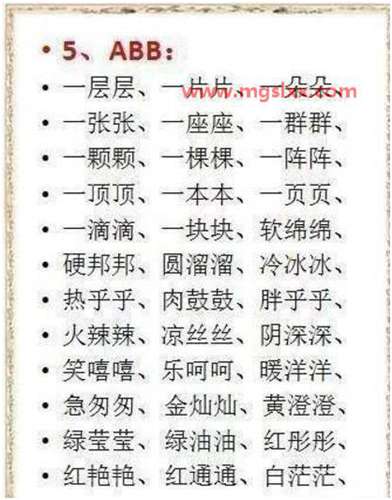 • 5、ABB：
• 一层层、一片片、一朵朵、
www.mgsbxx.com
• 一张张、一座座、一群群、
• 一颗颗、一棵棵、一阵阵、
• 一顶顶、一本本、一页页、
• 一滴滴、一块块、软绵绵、
• 硬邦邦、圆溜溜、冷冰冰、
• 热乎乎、肉鼓鼓、胖乎乎、
• 火辣辣、凉丝丝、阴深深、
• 笑嘻嘻、乐呵呵、暖洋洋、
• 急匆匆、金灿灿、黄澄澄、
• 绿莹莹、绿油油、红彤彤、
• 红艳艳、红通通、白茫茫、